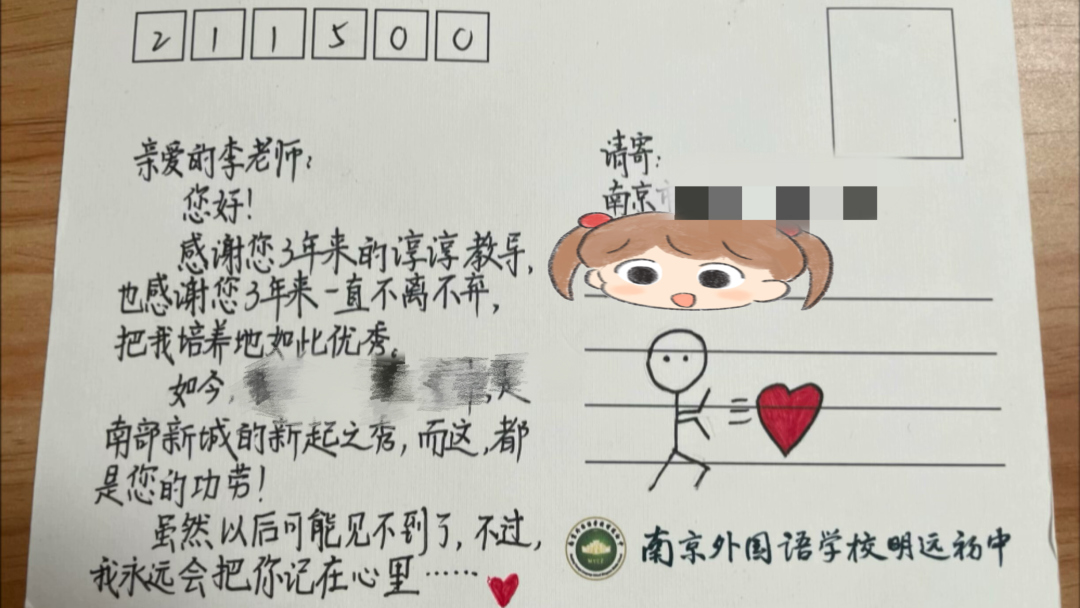 211500
亲爱的李老师:
您好!
感谢您3年来的谆谆教导,
也感谢您3年来一直不离不弃,
把我培养地如此优秀。
如今,
是
南部新城的新起之秀,而这,都
是您的功劳!
虽然以后可能见不到了,不过,
我永远会把你记在心里……
请寄:
南京
南京外国语学校明远初中